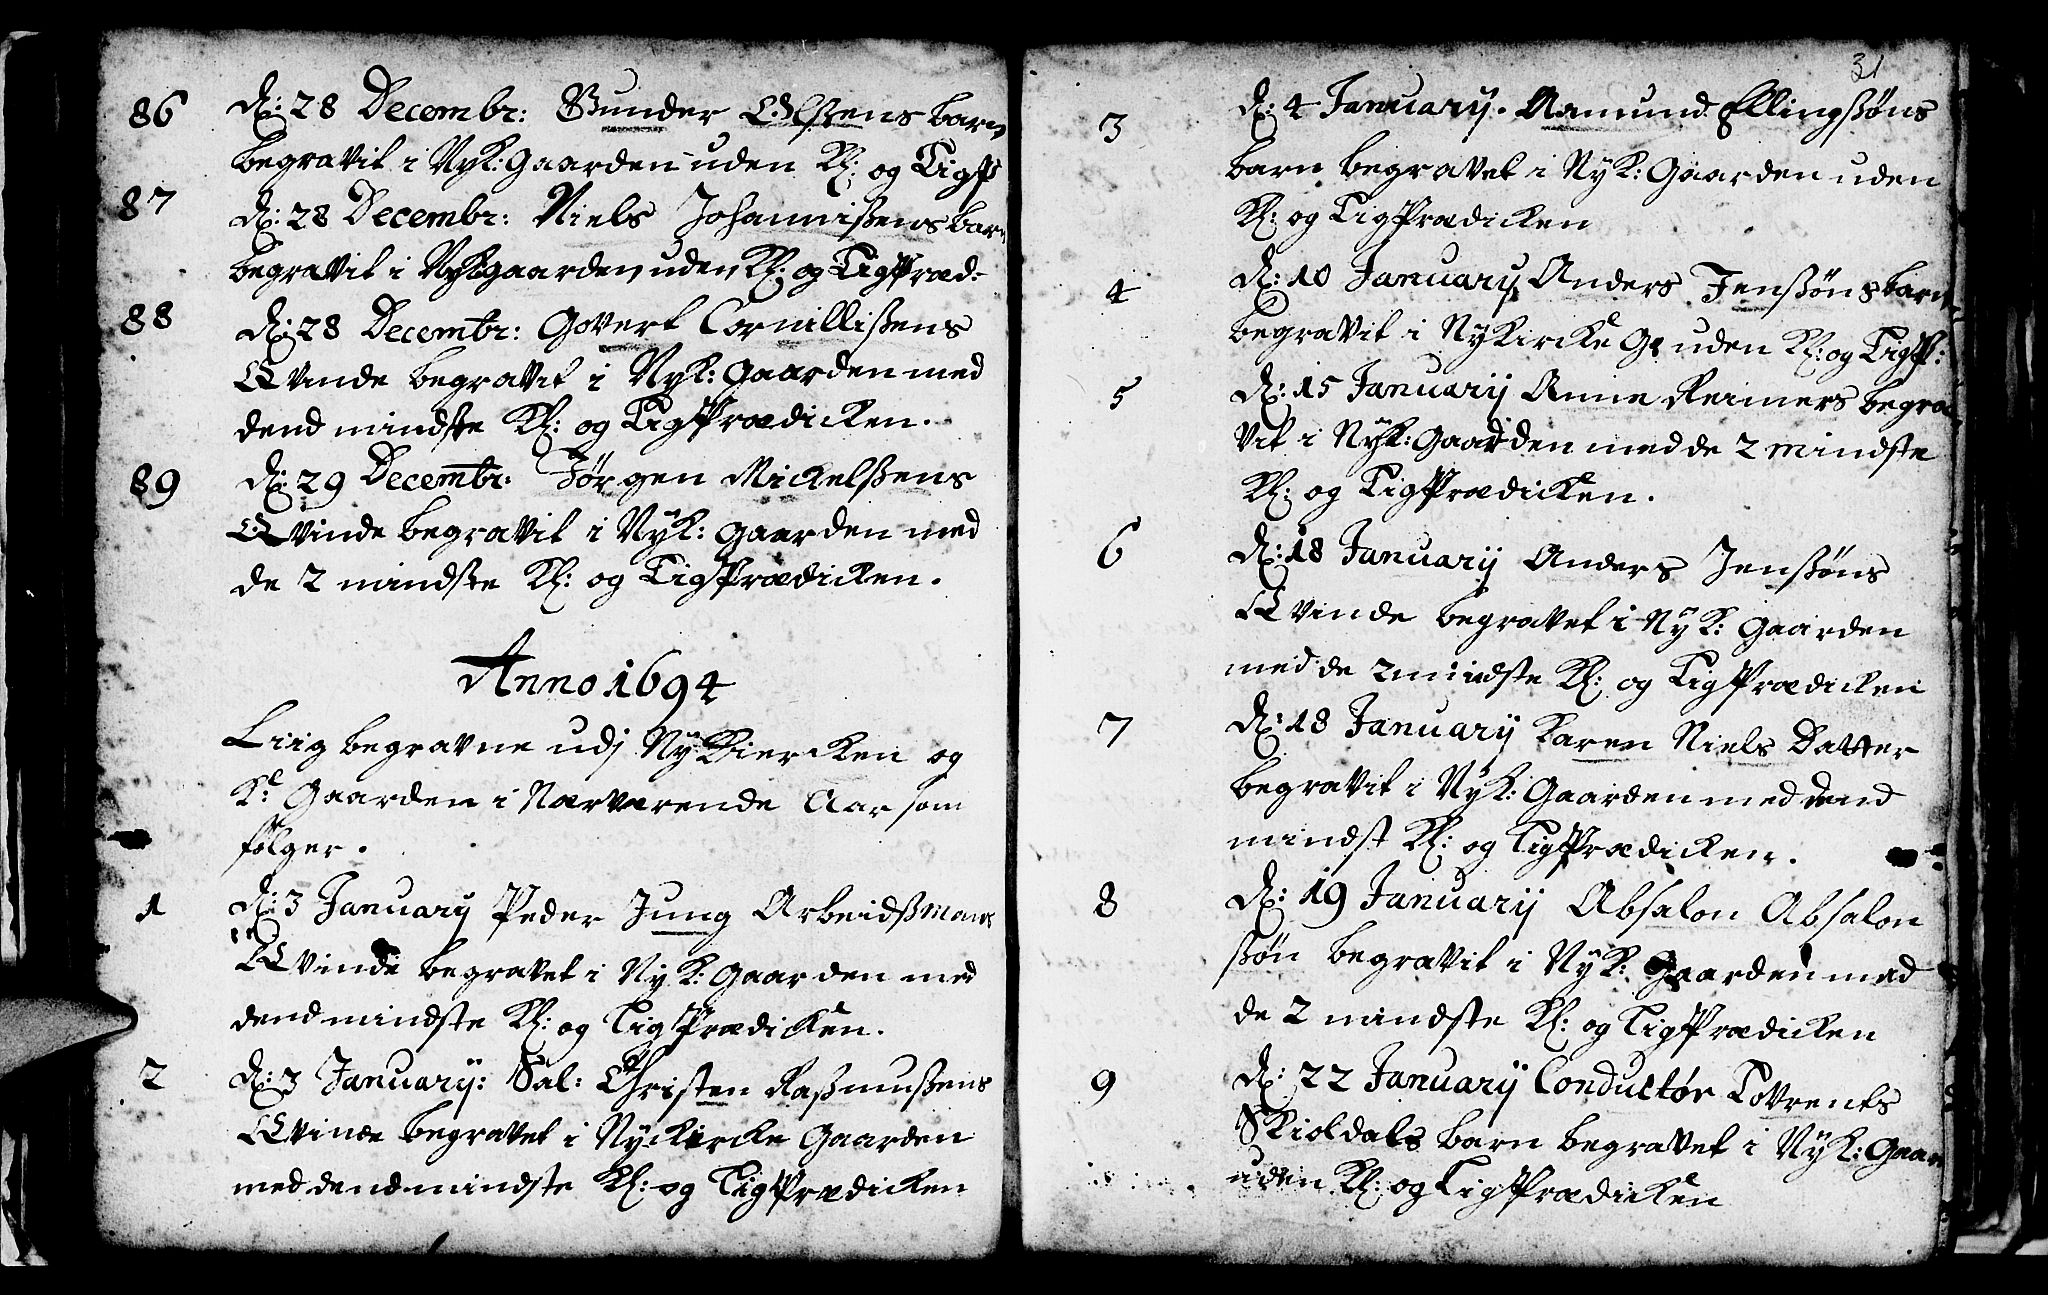 86 d: 28 Decembr: Gunder Olsens barn
begravit i Nyk: gaarden uden Kl: og LigP
87 d: 28 Decembr: Niels Johannißens barn
begravit i Nyk gaarden uden Kl: og LigPræd:
88 d: 28 Decembr: Govert Cornillißens
Qvinde begravit i Nyk: gaarden med
dend mindste Kl: og LigPrædicken.
89 d: 29 Decembr: Jørgen Mickelßens
Qvinde begravit i Nyk: gaarden med
de 2 mindste Kl: og LigPrædicken.
Anno 1694
Liig begravne udj NyKiercken og
K: Gaarden i Nærværende Aar som
følger.
1 d: 3 January Peder Jung Arbeidßmans
Qvinde begravet i NyK: Gaarden med
dend mindste Kl: og LigPrædicken.
2 d: 3 January: Sal: Christen Raßmußens
Qvinde begravet i Nyckircke Gaarden
med dend mindste Kl: og LigPrædicken
31
3 d: 4 January. Aamund Ellingßøns
barn begravet i NyK: Gaarden uden
Kl: og LigPrædicken
4 d: 10 January Anders Jenßøns barn
begravit i Nykircke G: uden Kl: og LigP:
5 d: 15 January Anne Reiners begra
vit i NyK: Gaarden med de 2 mindste
Kl: og LigPrædicken.
6 d: 18 January Anders Jenßøns
Qvinde begravet i NyK: Gaarden
med de 2 mindste Kl: og LigPrædicken
7 d: 18 January Karen Niels Datter
begravit i NyK: Gaarden med dend
mindst Kl: og LigPrædicken.
8 d: 19 January Absalon Absalon
ßøn begravit i NyK: Gaarden med
de 2 mindste Kl: og LigPrædicken
9 d: 22 January Conductør Lovrents
Skioldals barn begravet i NyK: Gaar
uden Kl: og LigPrædicken